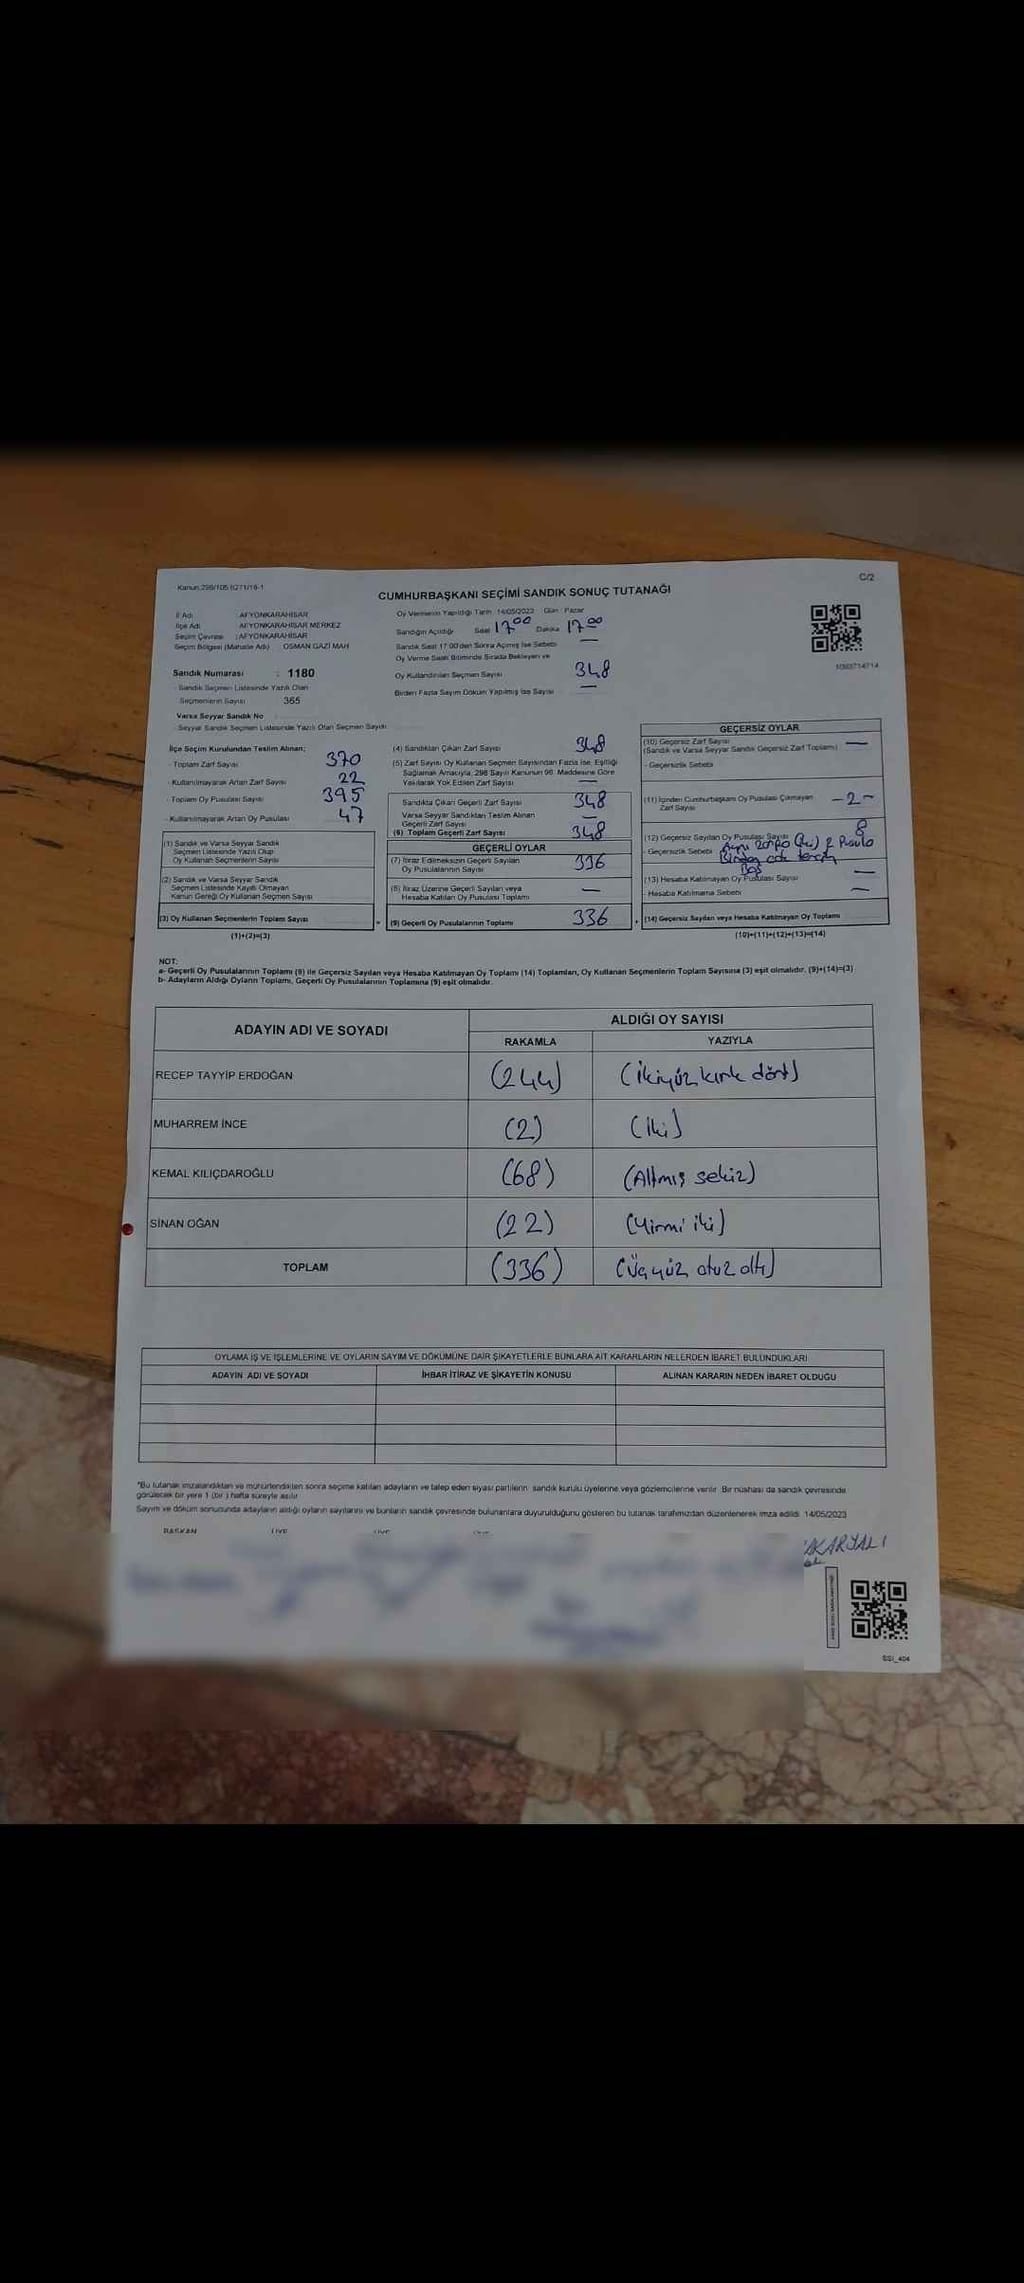 Kanun:298/105 6271/19-1
C/2
CUMHURBAŞKANI SEÇİMİ SANDIK SONUÇ TUTANAĞI
İl Adı : AFYONKARAHİSAR
İlçe Adı : AFYONKARAHİSAR MERKEZ
Seçim Çevresi : AFYONKARAHİSAR
Seçim Bölgesi (Mahalle Adı) : OSMAN GAZİ MAH
Sandık Numarası : 1180
- Sandık Seçmen Listesinde Yazılı Olan
Seçmenlerin Sayısı 365
Varsa Seyyar Sandık No
- Seyyar Sandık Seçmen Listesinde Yazılı Olan Seçmen Sayısı
Oy Vermenin Yapıldığı Tarih 14/05/2023 Gün : Pazar
Sandığın Açıldığı Saat 17 00 Dakika 17 00
Sandık Saat 17:00'den Sonra Açılmış İse Sebebi —
Oy Verme Saati Bitiminde Sırada Bekleyen ve
Oy Kullandırılan Seçmen Sayısı 348
Birden Fazla Sayım Döküm Yapılmış İse Sayısı —
İlçe Seçim Kurulundan Teslim Alınan;
- Toplam Zarf Sayısı 370
- Kullanılmayarak Artan Zarf Sayısı 22
- Toplam Oy Pusulası Sayısı 395
- Kullanılmayarak Artan Oy Pusulası 47
(1) Sandık ve Varsa Seyyar Sandık
Seçmen Listesinde Yazılı Olup
Oy Kullanan Seçmenlerin Sayısı
(2) Sandık ve Varsa Seyyar Sandık
Seçmen Listesinde Kayıtlı Olmayan
Kanun Gereği Oy Kullanan Seçmen Sayısı
(3) Oy Kullanan Seçmenlerin Toplam Sayısı
(1)+(2)=(3)
(4) Sandıktan Çıkan Zarf Sayısı 348
(5) Zarf Sayısı Oy Kullanan Seçmen Sayısından Fazla İse, Eşitliği
Sağlamak Amacıyla, 298 Sayılı Kanunun 98. Maddesine Göre
Yakılarak Yok Edilen Zarf Sayısı —
Sandıkta Çıkan Geçerli Zarf Sayısı 348
Varsa Seyyar Sandıktan Teslim Alınan
Geçerli Zarf Sayısı —
(6) Toplam Geçerli Zarf Sayısı 348
GEÇERLİ OYLAR
(7) İtiraz Edilmeksizin Geçerli Sayılan
Oy Pusulalarının Sayısı 336
(8) İtiraz Üzerine Geçerli Sayılan veya
Hesaba Katılan Oy Pusulası Toplamı —
(9) Geçerli Oy Pusulalarının Toplamı 336
GEÇERSİZ OYLAR
(10) Geçersiz Zarf Sayısı —
(Sandık ve Varsa Seyyar Sandık Geçersiz Zarf Toplamı)
- Geçersizlik Sebebi
(11) İçinden Cumhurbaşkanı Oy Pusulası Çıkmayan -2-
Zarf Sayısı
(12) Geçersiz Sayılan Oy Pusulası Sayısı 8
- Geçersizlik Sebebi
Boş
(13) Hesaba Katılmayan Oy Pusulası Sayısı —
- Hesaba Katılmama Sebebi —
(14) Geçersiz Sayılan veya Hesaba Katılmayan Oy Toplamı
(10)+(11)+(12)+(13)=(14)
NOT:
a- Geçerli Oy Pusulalarının Toplamı (9) ile Geçersiz Sayılan veya Hesaba Katılmayan Oy Toplamı (14) Toplamları, Oy Kullanan Seçmenlerin Toplam Sayısına (3) eşit olmalıdır. (9)+(14)=(3)
b- Adayların Aldığı Oyların Toplamı, Geçerli Oy Pusulalarının Toplamına (9) eşit olmalıdır.
ADAYIN ADI VE SOYADI
ALDIĞI OY SAYISI
RAKAMLA YAZIYLA
RECEP TAYYİP ERDOĞAN (244) (İkiyüz kırk dört)
MUHARREM İNCE (2) (İki)
KEMAL KILIÇDAROĞLU (68) (Altmış sekiz)
SİNAN OĞAN (22) (Yirmi iki)
TOPLAM (336) (Üçyüz otuz altı)
OYLAMA İŞ VE İŞLEMLERİNE VE OYLARIN SAYIM VE DÖKÜMÜNE DAİR ŞİKAYETLERLE BUNLARA AİT KARARLARIN NELERDEN İBARET BULUNDUKLARI
ADAYIN ADI VE SOYADI İHBAR İTİRAZ VE ŞİKAYETİN KONUSU ALINAN KARARIN NEDEN İBARET OLDUĞU
*Bu tutanak imzalandıktan ve mühürlendikten sonra seçime katılan adayların ve talep eden siyasi partilerin sandık kurulu üyelerine veya gözlemcilerine verilir. Bir nüshası da sandık çevresinde
görülecek bir yere 1 (bir ) hafta süreyle asılır.
Sayım ve döküm sonucunda adayların aldığı oyların sayılarını ve bunların sandık çevresinde bulunanlara duyurulduğunu gösteren bu tutanak tarafımızdan düzenlenerek imza edildi. 14/05/2023
BAŞKAN ÜYE ÜYE
AKARYALI
SSI_404